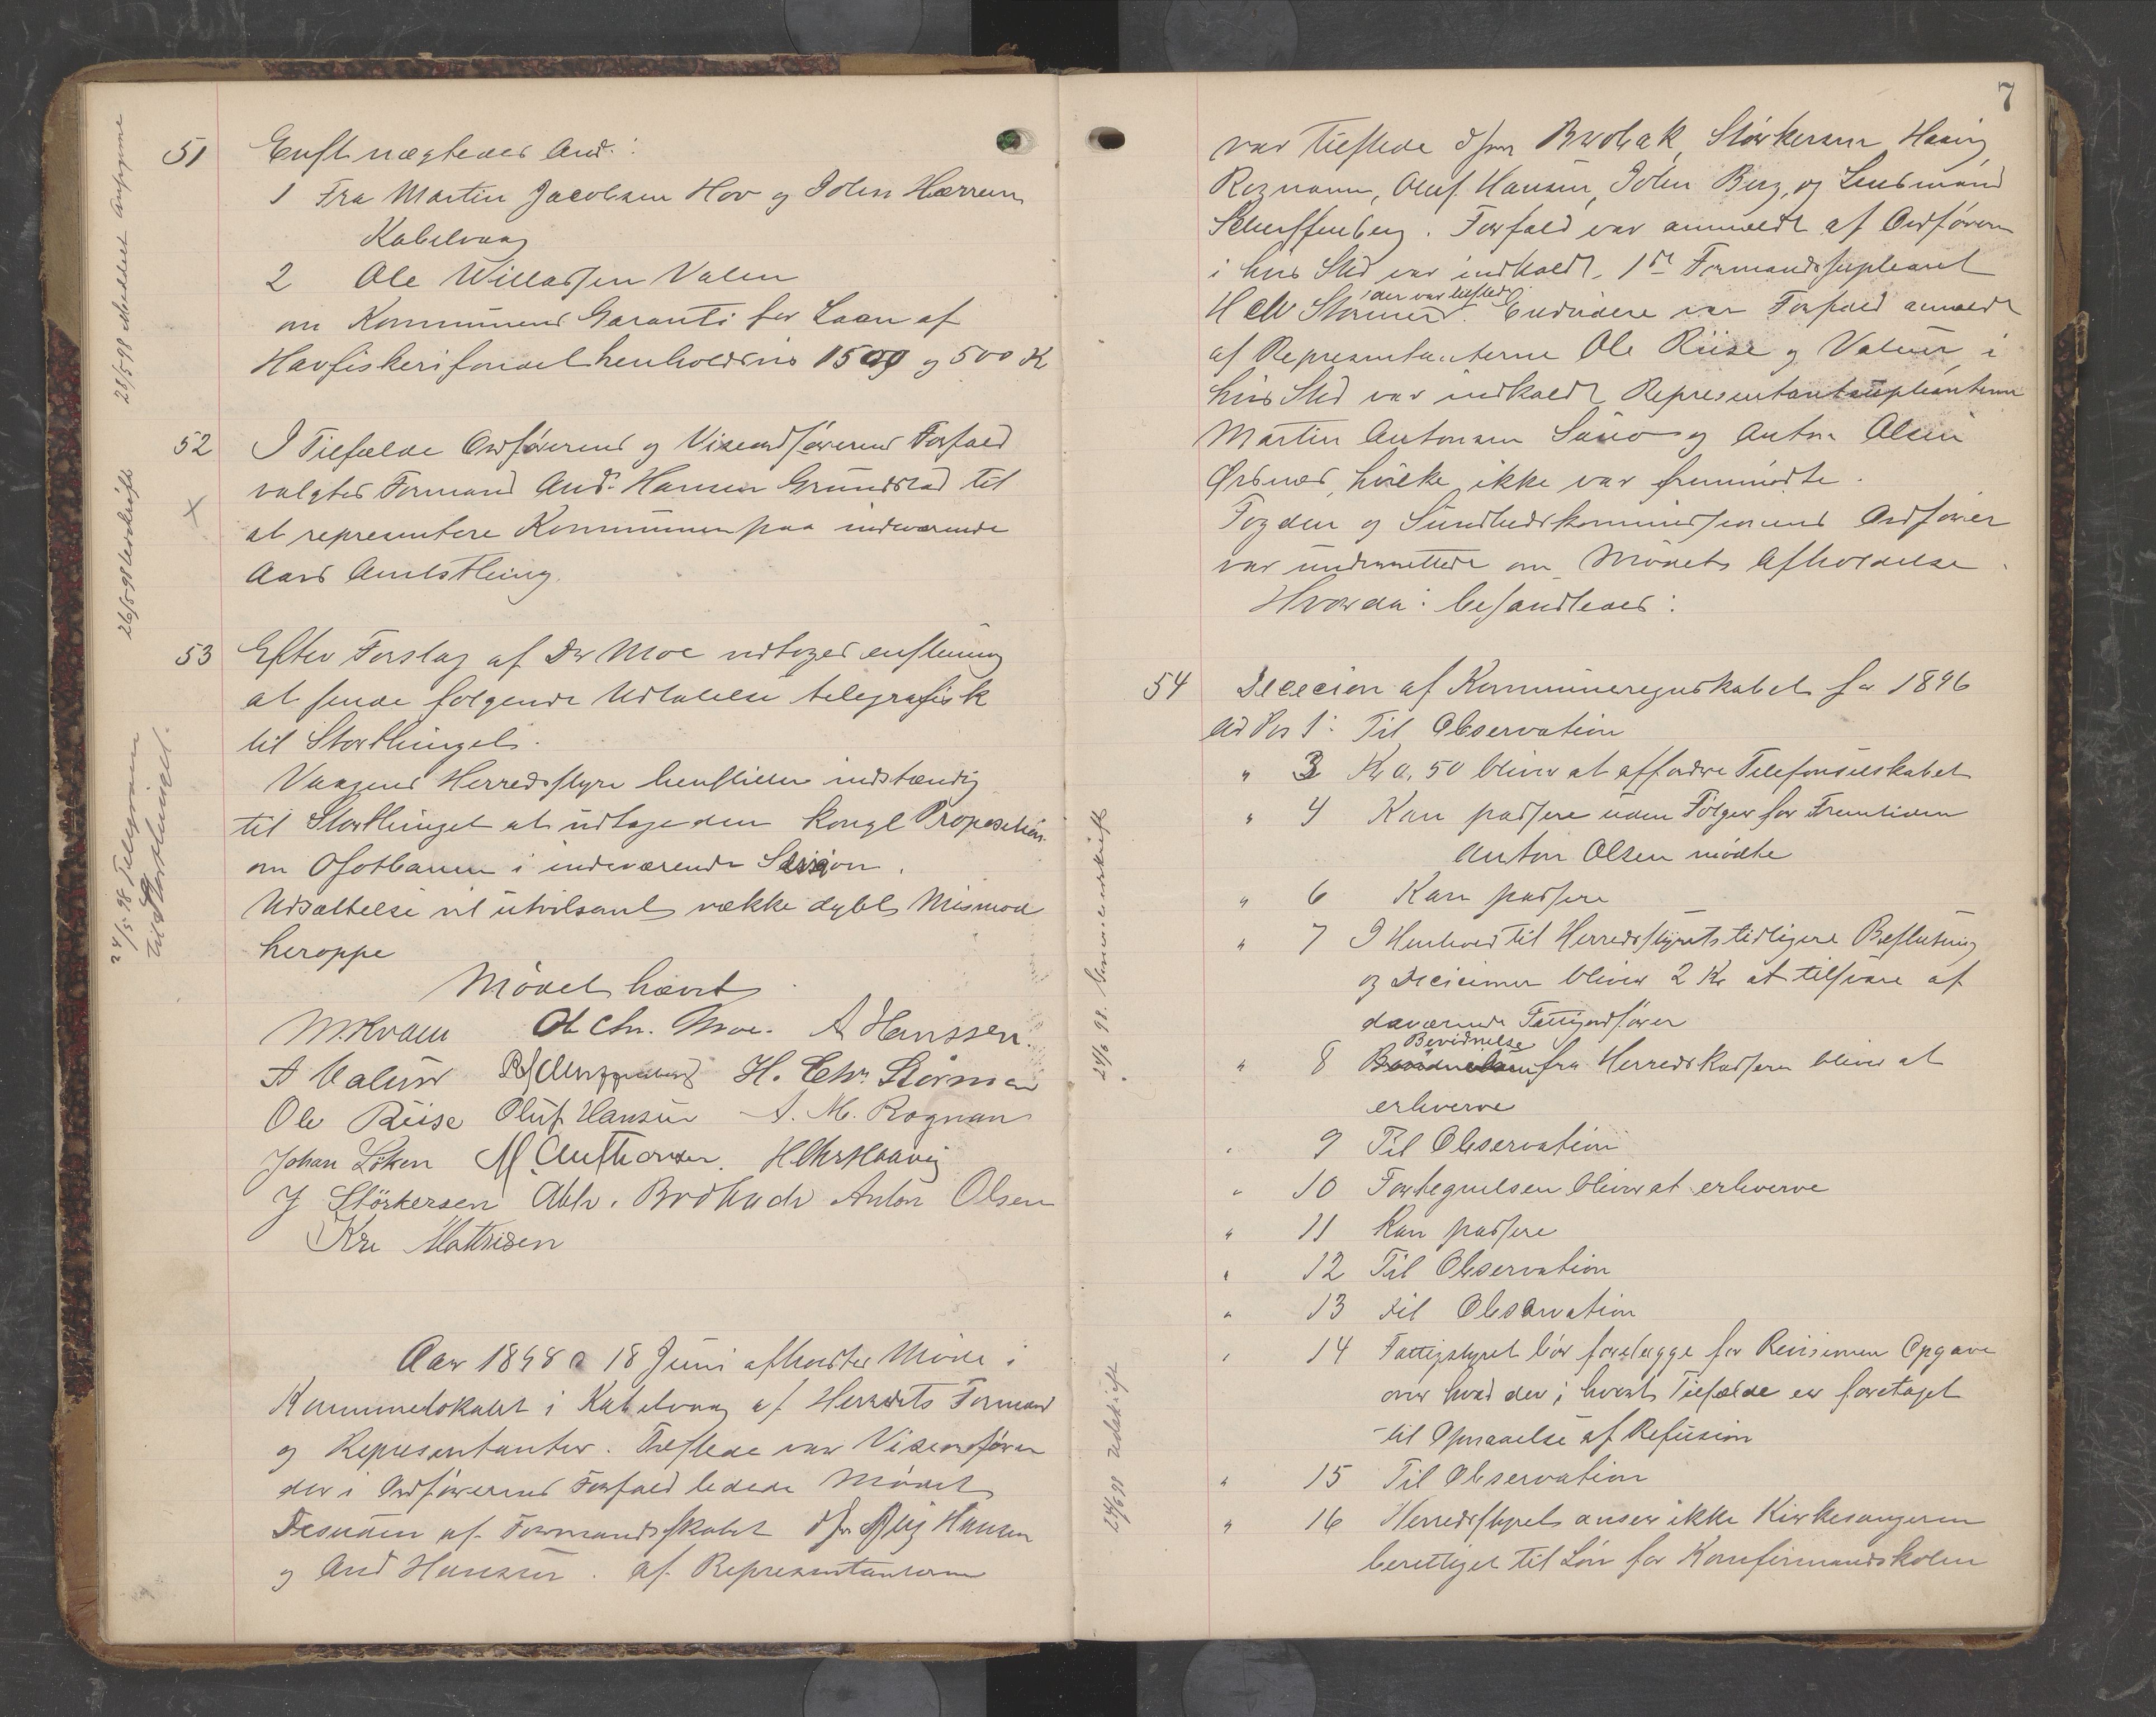 51 Enst. nægtedes And.:
1 Fra Martin Jacobsen Hov og John Hærrem
Kabelvaag
2 Ole Willassen Valen
om Kommunens Garanti for Laan af
Havfiskerifondet henholdsvis 1500 og 500 Kr
28/5 98 Meddelt Ansøgerne
52 I Tilfælde Ordførerens og Viseordførerens Forfald
valgtes Formand And. Hansen Grundstad til
at representere Kommunen paa indeværende
Aars Amtsthing.
X
26/5 98 Udskrift
53 Efter Forslag af Dr Moe vedtoges enstemmig
at sende følgende Udtalelse telegrafisk
til Storthinget.
Vaagens Herredsstyre henstiller indstændig
til Storthinget at vedtage den kongl Proposition
om Ofotbanen i indeværende Session.
Udsættelse vil utvilsomt vække dybt Mismod
heroppe
24/5 98 Telegram
til Storthinget.
Mødet hævet
M. Kvam Ol Chr. Moe. A Hanssen.
A Valeur H. Chr. Störmer
Ole Riise Oluf Hansen A. M. Rognan
Johan Löken M. Anthonsen. H Chr Haavig
J Störkersen Abh. Brodback Anton Olsen
Kr Mathisen
Aar 1898 d 18 Juni afholdtes Møde i
Kommunelokalet i Kabelvaag af Herredets Formænd
og Representanter. Tilstede var Viseordfører
der i Ordførerens Forfald ledede Mødet
Desuden af Formandsskabet dhr Hansen
og And Hanssen. af Representanterne
7
var tilstede dhrr Brobak, Störkersen Haavig
Rognann, Oluf Hansen, John Berg, og Lensmand
Scheffenberg. Forfald var anmeldt af Ordføreren
i hvis Sted var indkaldt 1ste Formandssupleant
H Chr Störmer der var tilstede. Endvidere var Forfald anmeldt
af Representanterne Ole Riise og Valeur i
hvis Sted var indkaldt Representantsupleanterne
Martin Antonsen Sauø og Anton Olsen
Ørsnes, hvilke ikke var fremmødte.
Fogden og Sundhedskommissionens Ordfører
var underrettede om Mødets Afholdelse.
Hvorda behandledes:
54 Decision af Kommuneregnskabet for 1896
Ad Pos 1: Til Observation
" 3 Kr 0,50 bliver at affordre Telefonselskabet
" 4 Kan passere uden Følger for Fremtiden
Anton Olsen mødte
" 6 Kan passere
" 7 I Henhold til Herredsstyrets tidligere Beslutning
og Decisioner bliver 2 Kr at tilsvare af
daværende Fattigordfører
" 8 Bevidnelse fra Herredskassereren bliver at
erhverve
24/6 98.
" 9 Til Observation
" 10 Fortegnelsen bliver at erhverve
" 11 Kan passere
" 12 Til Observation
" 13 Til Observation
" 14 Fattigstyret bør forelægge for Revisionen Opgave
over hvad der i hvert Tilfælde er foretaget
til Opnaaelse af Refusion
24/6 98 Udskrift
" 15 Til Observation
" 16 Herredsstyret anser ikke Kirkesangeren
berettiget til Løn for Konfirmandskolen